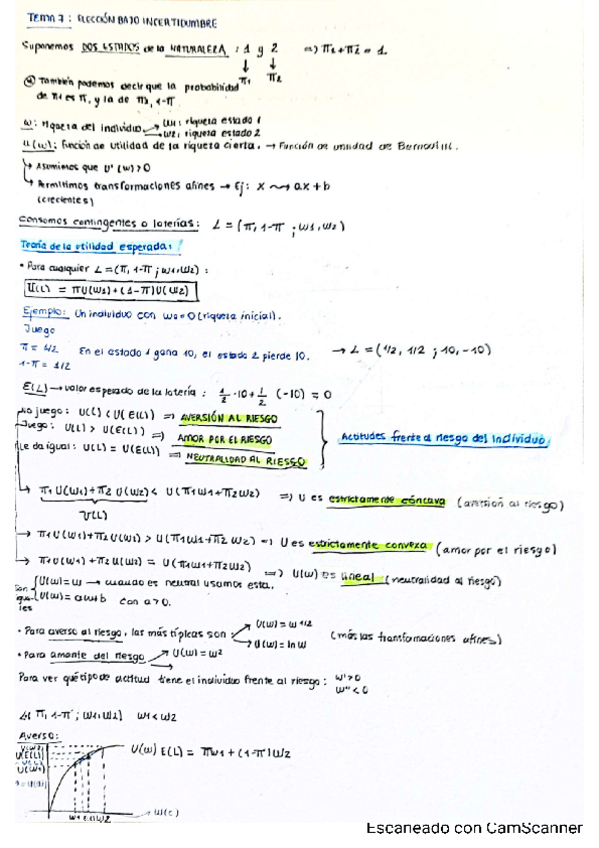 TEMA 7: ELECCIÓN BAJO INCERTIDUMBRE
Suponemos DOS ESTADOS de la NATURALEZA : 1 y 2 => π1+π2 = 1.
↓ ↓
π1 π2
* También podemos decir que la probabilidad
de π1 es π, y la de π2, 1-π
w: riqueza del individuo → w1: riqueza estado 1
→ w2: riqueza estado 2
U(w): función de utilidad de la riqueza cierta. → Función de utilidad de Bernoulli.
→ Asumimos que U'(w)>0
→ Permitimos transformaciones afines → Ej: x ⇝ ax+b
(crecientes)
Consumos contingentes o loterías: L = (π, 1-π ; w1, w2)
Teoría de la utilidad esperada:
• Para cualquier L = (π, 1-π ; w1, w2) :
U(L) = πU(w1) + (1-π)U(w2)
Ejemplo: Un individuo con w0=0 (riqueza inicial).
Juego
π = 1/2 En el estado 1 gana 10, el estado 2 pierde 10. → L = (1/2, 1/2 ; 10, -10)
1-π = 1/2
E(L) → valor esperado de la lotería : 1/2 · 10 + 1/2 (-10) = 0
No juego: U(L) < U(E(L)) => AVERSIÓN AL RIESGO
Juego: U(L) > U(E(L)) => AMOR POR EL RIESGO
Le da igual: U(L) = U(E(L)) => NEUTRALIDAD AL RIESGO
Actitudes frente al riesgo del individuo
→ π1U(w1)+π2U(w2) < U(π1w1+π2w2) => U es estrictamente cóncava (aversión al riesgo)
U(L)
→ π1U(w1)+π2U(w2) > U(π1w1+π2w2) => U es estrictamente convexa (amor por el riesgo)
→ π1U(w1)+π2U(w2) = U(π1w1+π2w2) => U(w) es lineal (neutralidad al riesgo)
Son iguales
U(w)=w → cuando es neutral usamos esta.
U(w)=aw+b con a>0.
• Para averso al riesgo, las más típicas son → U(w)=w^1/2
→ U(w)=ln w (más las transformaciones afines)
• Para amante del riesgo → U(w)=w²
Para ver qué tipo de actitud tiene el individuo frente al riesgo: w'>0
w''<0
L(π, 1-π ; w1, w2) w1<w2
Averso:
U(w) E(L) = πw1 + (1-π)w2
U(w2)
U(E(L))
U(L)
U(w1)
w1 E(L) w2
Escaneado con CamScanner